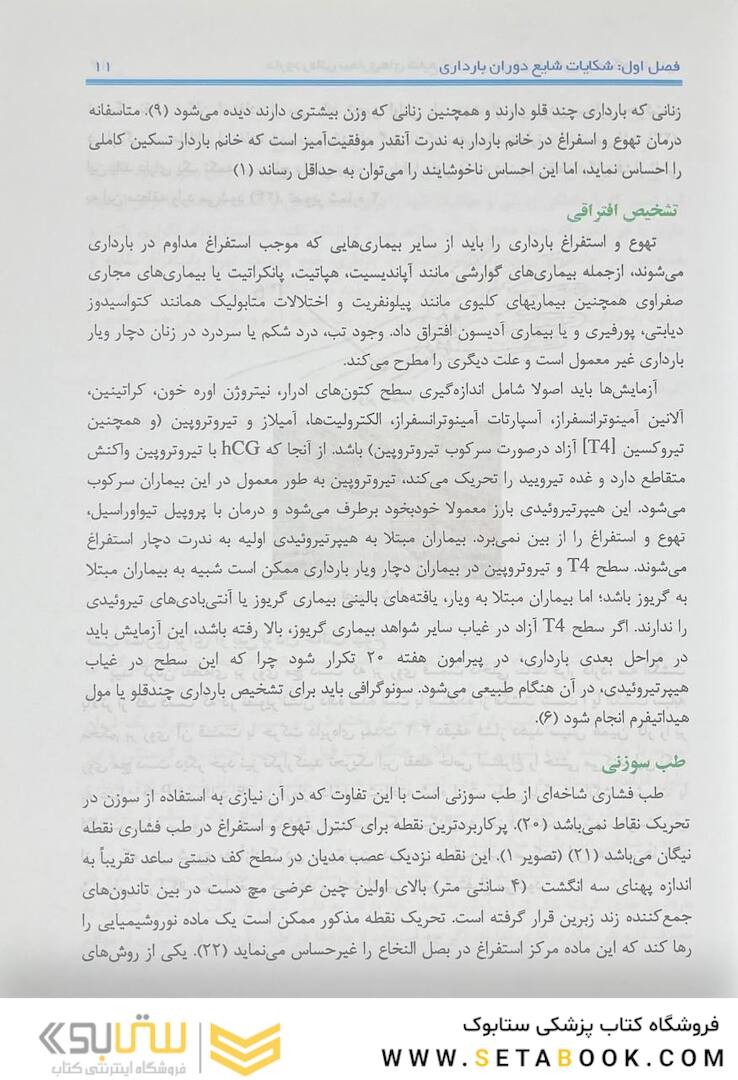 فصل اول: شکایات شایع دوران بارداری ۱۱
زنانی که بارداری چند قلو دارند و همچنین زنانی که وزن بیشتری دارند دیده می‌شود (۹). متاسفانه
درمان تهوع و اسفراغ در خانم باردار به ندرت آنقدر موفقیت‌آمیز است که خانم باردار تسکین کاملی
را احساس نماید، اما این احساس ناخوشایند را می‌توان به حداقل رساند (۱)
تشخیص افتراقی
تهوع و استفراغ بارداری را باید از سایر بیماری‌هایی که موجب استفراغ مداوم در بارداری
می‌شوند، ازجمله بیماری‌های گوارشی مانند آپاندیسیت، هپاتیت، پانکراتیت یا بیماری‌های مجاری
صفراوی همچنین بیماریهای کلیوی مانند پیلونفریت و اختلالات متابولیک همانند کتواسیدوز
دیابتی، پورفیری و یا بیماری آدیسون افتراق داد. وجود تب، درد شکم یا سردرد در زنان دچار ویار
بارداری غیر معمول است و علت دیگری را مطرح می‌کند.
آزمایش‌ها باید اصولا شامل اندازه‌گیری سطح کتون‌های ادرار، نیتروژن اوره خون، کراتینین،
آلانین آمینوترانسفراز، آسپارتات آمینوترانسفراز، الکترولیت‌ها، آمیلاز و تیروتروپین (و همچنین
تیروکسین [T4] آزاد درصورت سرکوب تیروتروپین) باشد. از آنجا که hCG با تیروتروپین واکنش
متقاطع دارد و غده تیرویید را تحریک می‌کند، تیروتروپین به طور معمول در این بیماران سرکوب
می‌شود. این هیپرتیروئیدی بارز معمولا خودبخود برطرف می‌شود و درمان با پروپیل تیواوراسیل،
تهوع و استفراغ را از بین نمی‌برد. بیماران مبتلا به هیپرتیروئیدی اولیه به ندرت دچار استفراغ
می‌شوند. سطح T4 و تیروتروپین در بیماران دچار ویار بارداری ممکن است شبیه به بیماران مبتلا
به گریوز باشد؛ اما بیماران مبتلا به ویار، یافته‌های بالینی بیماری گریوز یا آنتی‌بادی‌های تیروئیدی
را ندارند. اگر سطح T4 آزاد در غیاب سایر شواهد بیماری گریوز، بالا رفته باشد، این آزمایش باید
در مراحل بعدی بارداری، در پیرامون هفته ۲۰ تکرار شود چرا که این سطح در غیاب
هیپرتیروئیدی، در آن هنگام طبیعی می‌شود. سونوگرافی باید برای تشخیص بارداری چندقلو یا مول
هیداتیفرم انجام شود (۶).
طب سوزنی
طب فشاری شاخه‌ای از طب سوزنی است با این تفاوت که در آن نیازی به استفاده از سوزن در
تحریک نقاط نمی‌باشد (۲۰). پرکاربردترین نقطه برای کنترل تهوع و استفراغ در طب فشاری نقطه
نیگان می‌باشد (۲۱) (تصویر ۱). این نقطه نزدیک عصب مدیان در سطح کف دستی ساعد تقریباً به
اندازه پهنای سه انگشت (۴ سانتی متر) بالای اولین چین عرضی مچ دست در بین تاندون‌های
جمع‌کننده زند زبرین قرار گرفته است. تحریک نقطه مذکور ممکن است یک ماده نوروشیمیایی را
رها کند که این ماده مرکز استفراغ در بصل النخاع را غیرحساس می‌نماید (۲۲). یکی از روش‌های
فروشگاه کتاب پزشکی ستابوک
WWW.SETABOOK.COM
ستابوک
فروشگاه اینترنتی کتاب